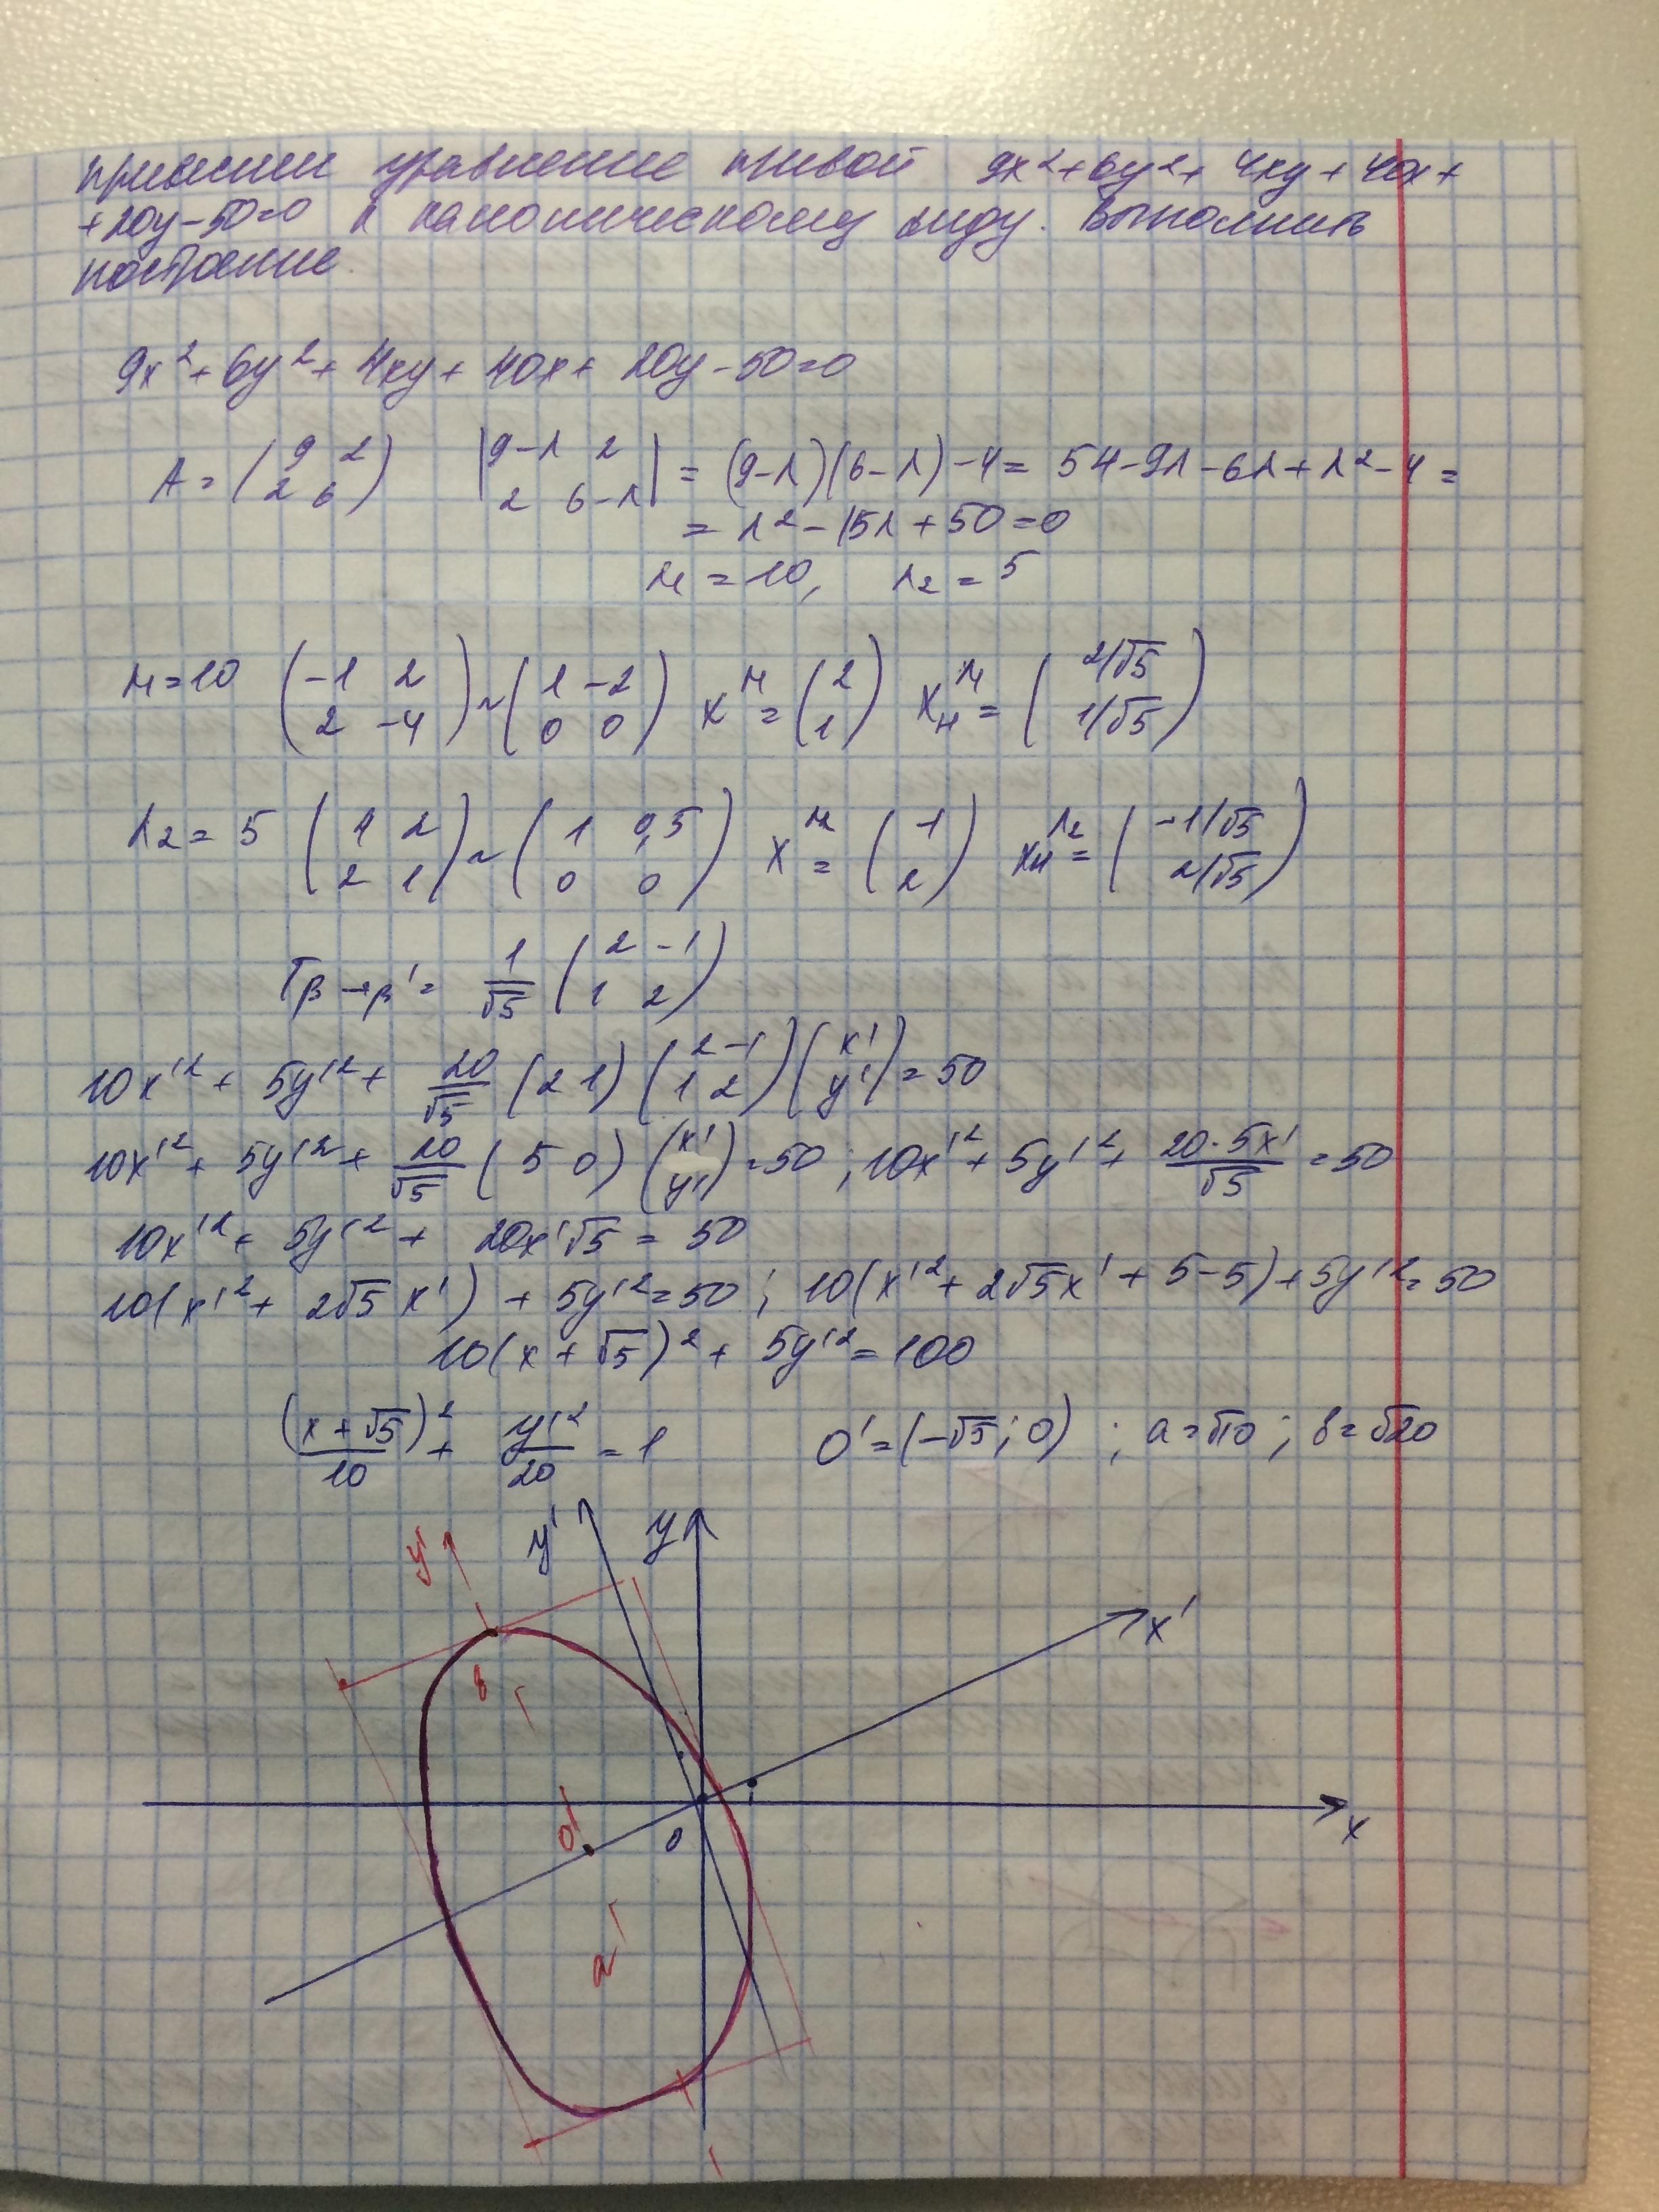 привести уравнение кривой 9x²+6y²+4xy+40x+
+20y-50=0 к каноническому виду. Выполнить
построение.
9x²+6y²+4xy+40x+20y-50=0
A = (9 2 2 6) |9-λ 2 2 6-λ| = (9-λ)(6-λ)-4 = 54-9λ-6λ+λ²-4 =
= λ²-15λ+50=0
λ₁=10, λ₂=5
λ₁=10 (-1 2 2 -4) ~ (1 -2 0 0) X^λ₁ = (2 1) X_н^λ₁ = (2/√5 1/√5)
λ₂=5 (4 2 2 1) ~ (1 0,5 0 0) X^λ₂ = (-1 2) X_н^λ₂ = (-1/√5 2/√5)
T_β→β' = 1/√5 (2 -1 1 2)
10x'²+5y'²+ 20/√5 (2 1) (2 -1 1 2) (x' y') = 50
10x'²+5y'²+ 20/√5 (5 0) (x' y') = 50 ; 10x'²+5y'²+ 20·5x'/√5 = 50
10x'²+5y'²+20x'√5 = 50
10(x'²+2√5x')+5y'²=50 ; 10(x'²+2√5x'+5-5)+5y'²=50
10(x+√5)²+5y'²=100
(x+√5)²/10 + y'²/20 = 1 O'=(-√5; 0) ; a=√10 ; b=√20
y' y' y
x'
b
O' 0 1 x
a